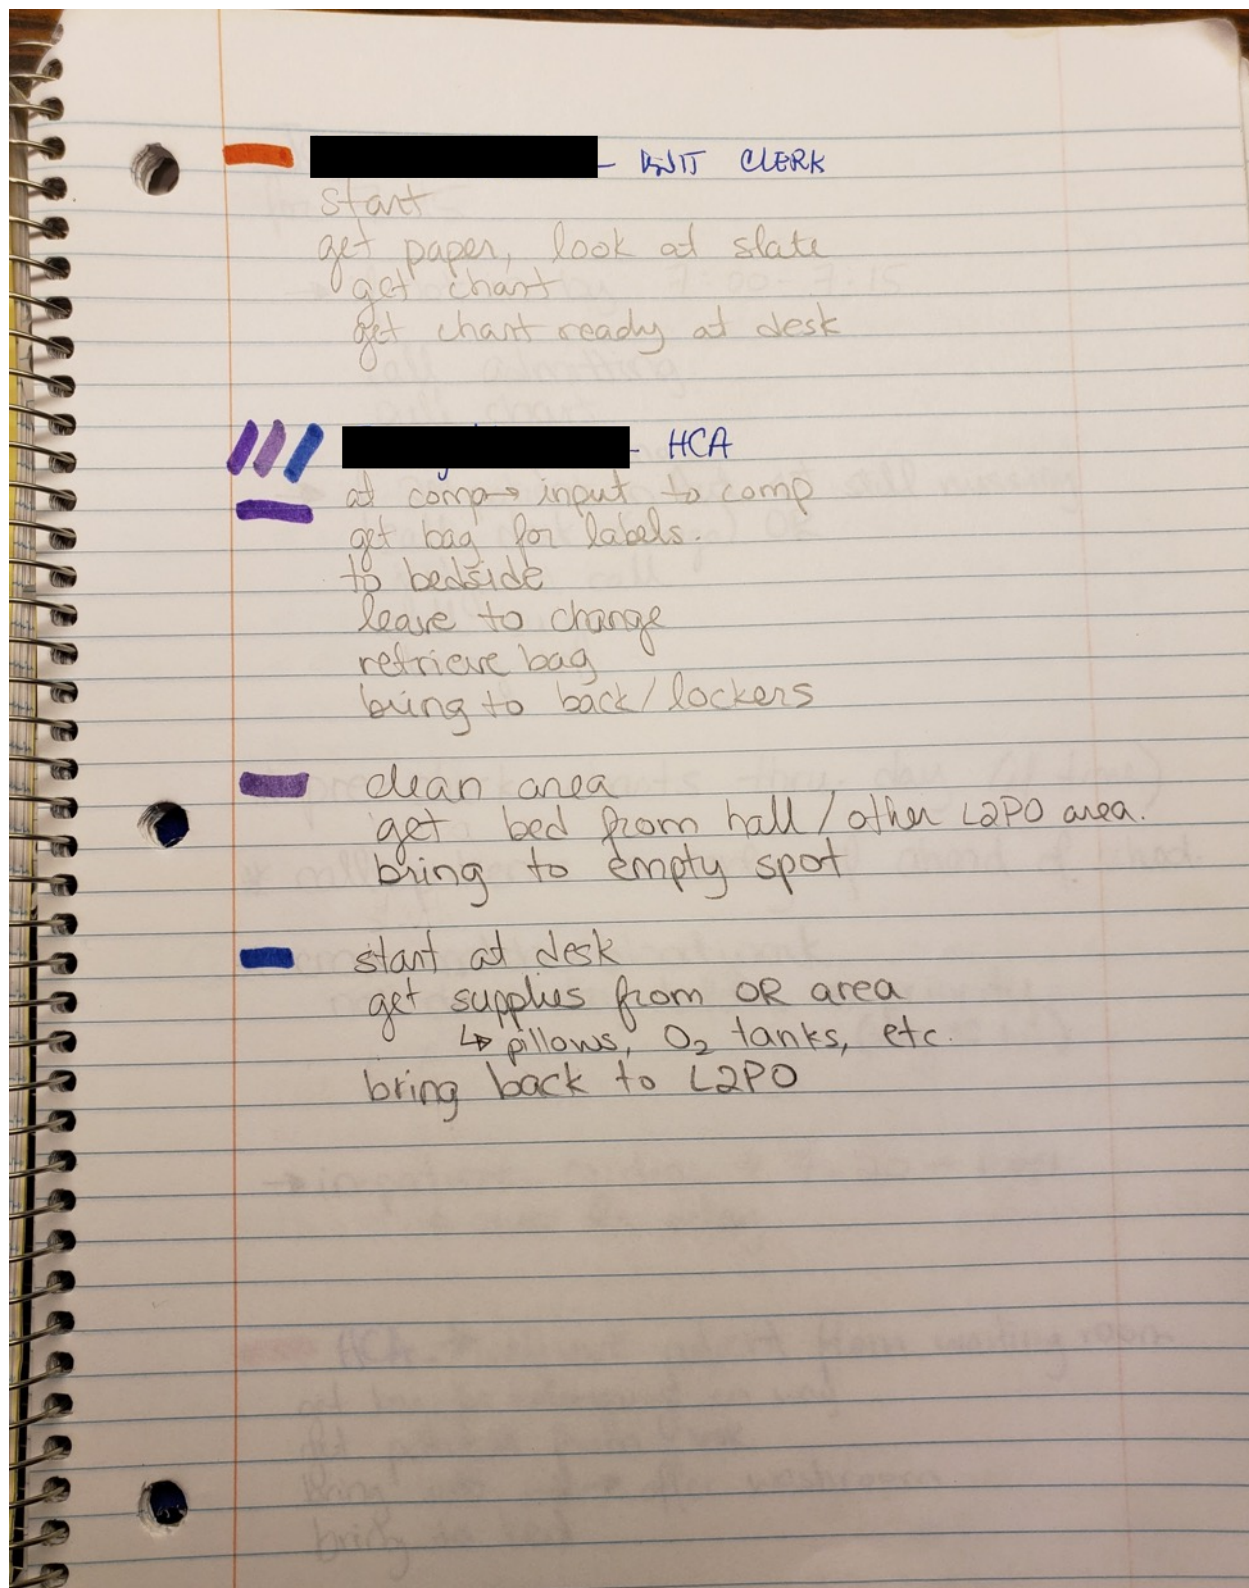 - UNIT CLERK
start
get paper, look at slate
get chart
get chart ready at desk
- HCA
at comp → input to comp
get bag for labels.
to bedside
leave to change
retrieve bag
bring to back/lockers
clean area
get bed from hall/other L2PO area.
bring to empty spot
start at desk
get supplies from OR area
↳ pillows, O₂ tanks, etc.
bring back to L2PO